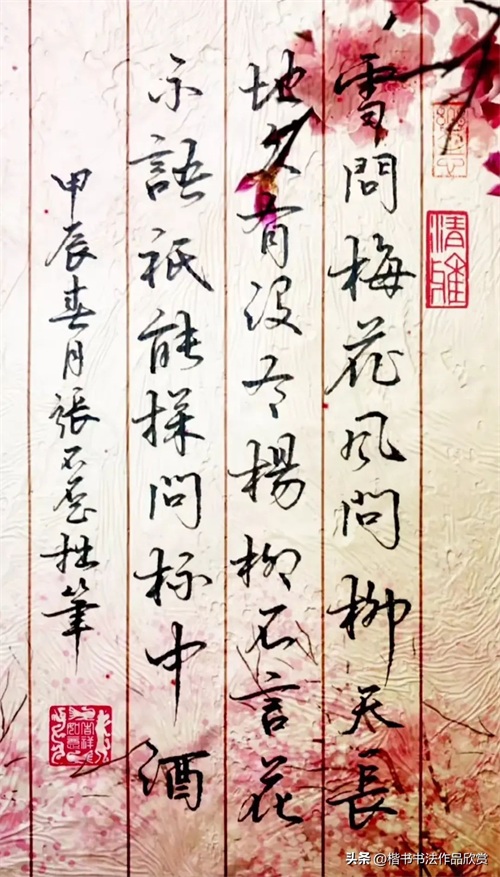 雪問梅花風問柳天長
地久有没有楊柳不言花
不語祇能探問杯中酒
甲辰春月張石拙筆
清雅
头条 @楷书书法作品欣赏